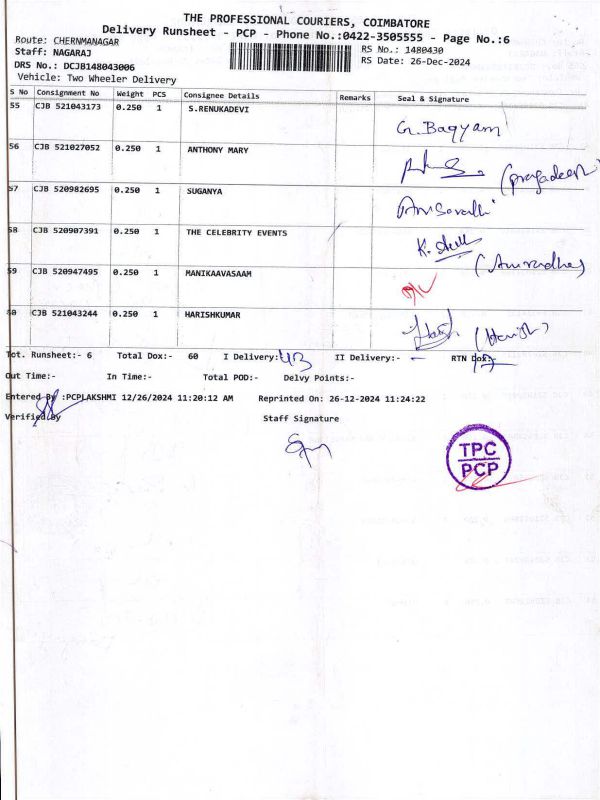 THE PROFESSIONAL COURIERS, COIMBATORE
Delivery Runsheet - PCP - Phone No.:0422-3505555 - Page No.:6
Route: CHERNMANAGAR RS No.: 1480430
Staff: NAGARAJ RS Date: 26-Dec-2024
DRS No.: DCJB148043006
Vehicle: Two Wheeler Delivery
S No Consignment No Weight PCS Consignee Details Remarks Seal & Signature
55 CJB 521043173 0.250 1 S.RENUKADEVI
G. Bagyam
56 CJB 521027052 0.250 1 ANTHONY MARY
(Pragadeesh)
57 CJB 520982695 0.250 1 SUGANYA
58 CJB 520907391 0.250 1 THE CELEBRITY EVENTS
(Anuradha)
59 CJB 520947495 0.250 1 MANIKAAVASAAM
60 CJB 521043244 0.250 1 HARISHKUMAR
(Harish)
Tot. Runsheet:- 6 Total Dox:- 60 I Delivery:- 43 II Delivery:- — RTN Dox:- 17
Out Time:- In Time:- Total POD:- Delvy Points:-
Entered By :PCPLAKSHMI 12/26/2024 11:20:12 AM Reprinted On: 26-12-2024 11:24:22
Verified By Staff Signature
TPC
PCP